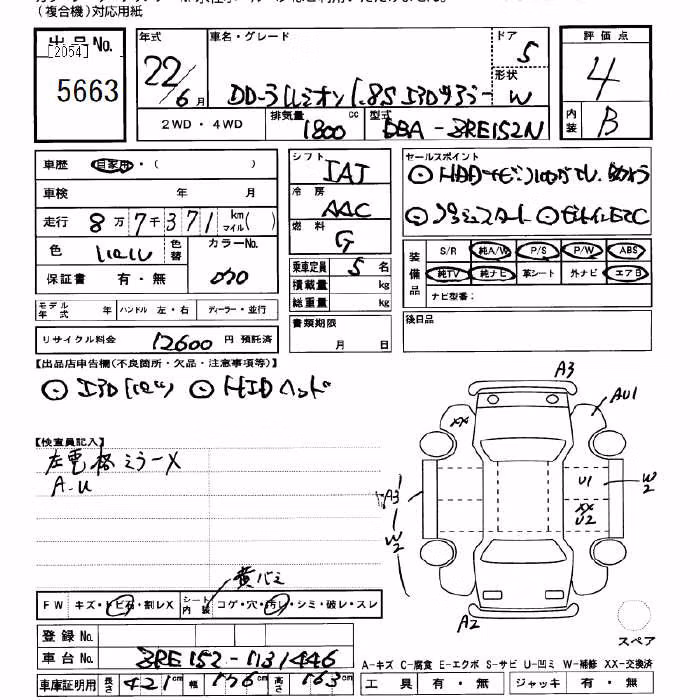 (複合機)対応用紙
出品No.
[2054]
5663
年式
22/6月
車名・グレード
1.8S
ドア
5
形状
W
評価点
4
内装
B
2WD・4WD
排気量
1800cc
型式
DBA-ZRE152N
車歴 自家用・( )
車検 年 月
走行 8万7千371 km マイル( )
色
色替
カラーNo.
070
保証書 有・無
シフト
IAT
冷房
AAC
燃料
G
乗車定員 5名
積載量 kg
総重量 kg
書類期限
月 日
セールスポイント
◎プッシュスタート ◎ビルトインETC
装備品
S/R 純A/W P/S P/W ABS
純TV 純ナビ 革シート 外ナビ エアB
ナビ型番:
後日品
モデル年式 年 ハンドル 左・右 ディーラー・並行
リサイクル料金 12600円 預託済
【出品店申告欄(不良箇所・欠品・注意事項等)】
◎HIDヘッド
【検査員記入】
左電格ミラーX
A-U
A3
AU1
XX
A3
W2
U1
W2
XX
U2
A2
スペア
黄バミ
FW キズ・トビ石・割レX
シート内装 コゲ・穴・汚レ・シミ・破レ・スレ
登録No.
車台No. ZRE152-1131446
車庫証明用 長さ 421cm 幅 176cm 高さ 163cm
A-キズ C-腐食 E-エクボ S-サビ U-凹ミ W-補修 XX-交換済
工具 有・無 ジャッキ 有・無